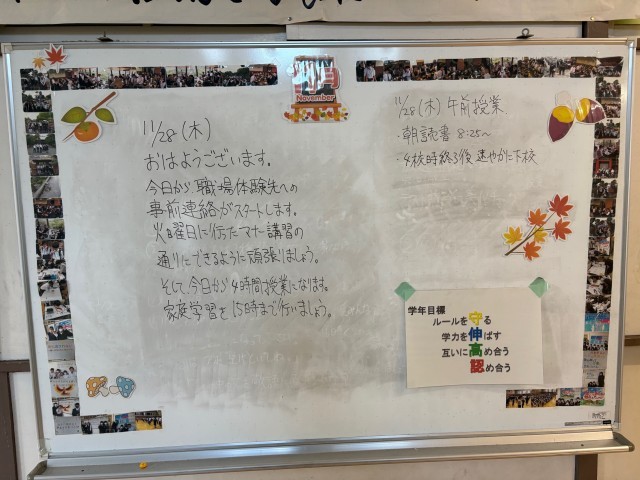 11月
November
11/28(木)
おはようございます。
今日から職場体験先への
事前連絡がスタートします。
火曜日に行ったマナー講習の
通りにできるように頑張りましょう。
そして、今日から4時間授業になります。
家庭学習を15時まで行いましょう。
11/28(木)午前授業
・朝読書 8:25～
・4校時終了後 速やかに下校
学年目標
ルールを守る
学力を伸ばす
互いに高め合う
認め合う